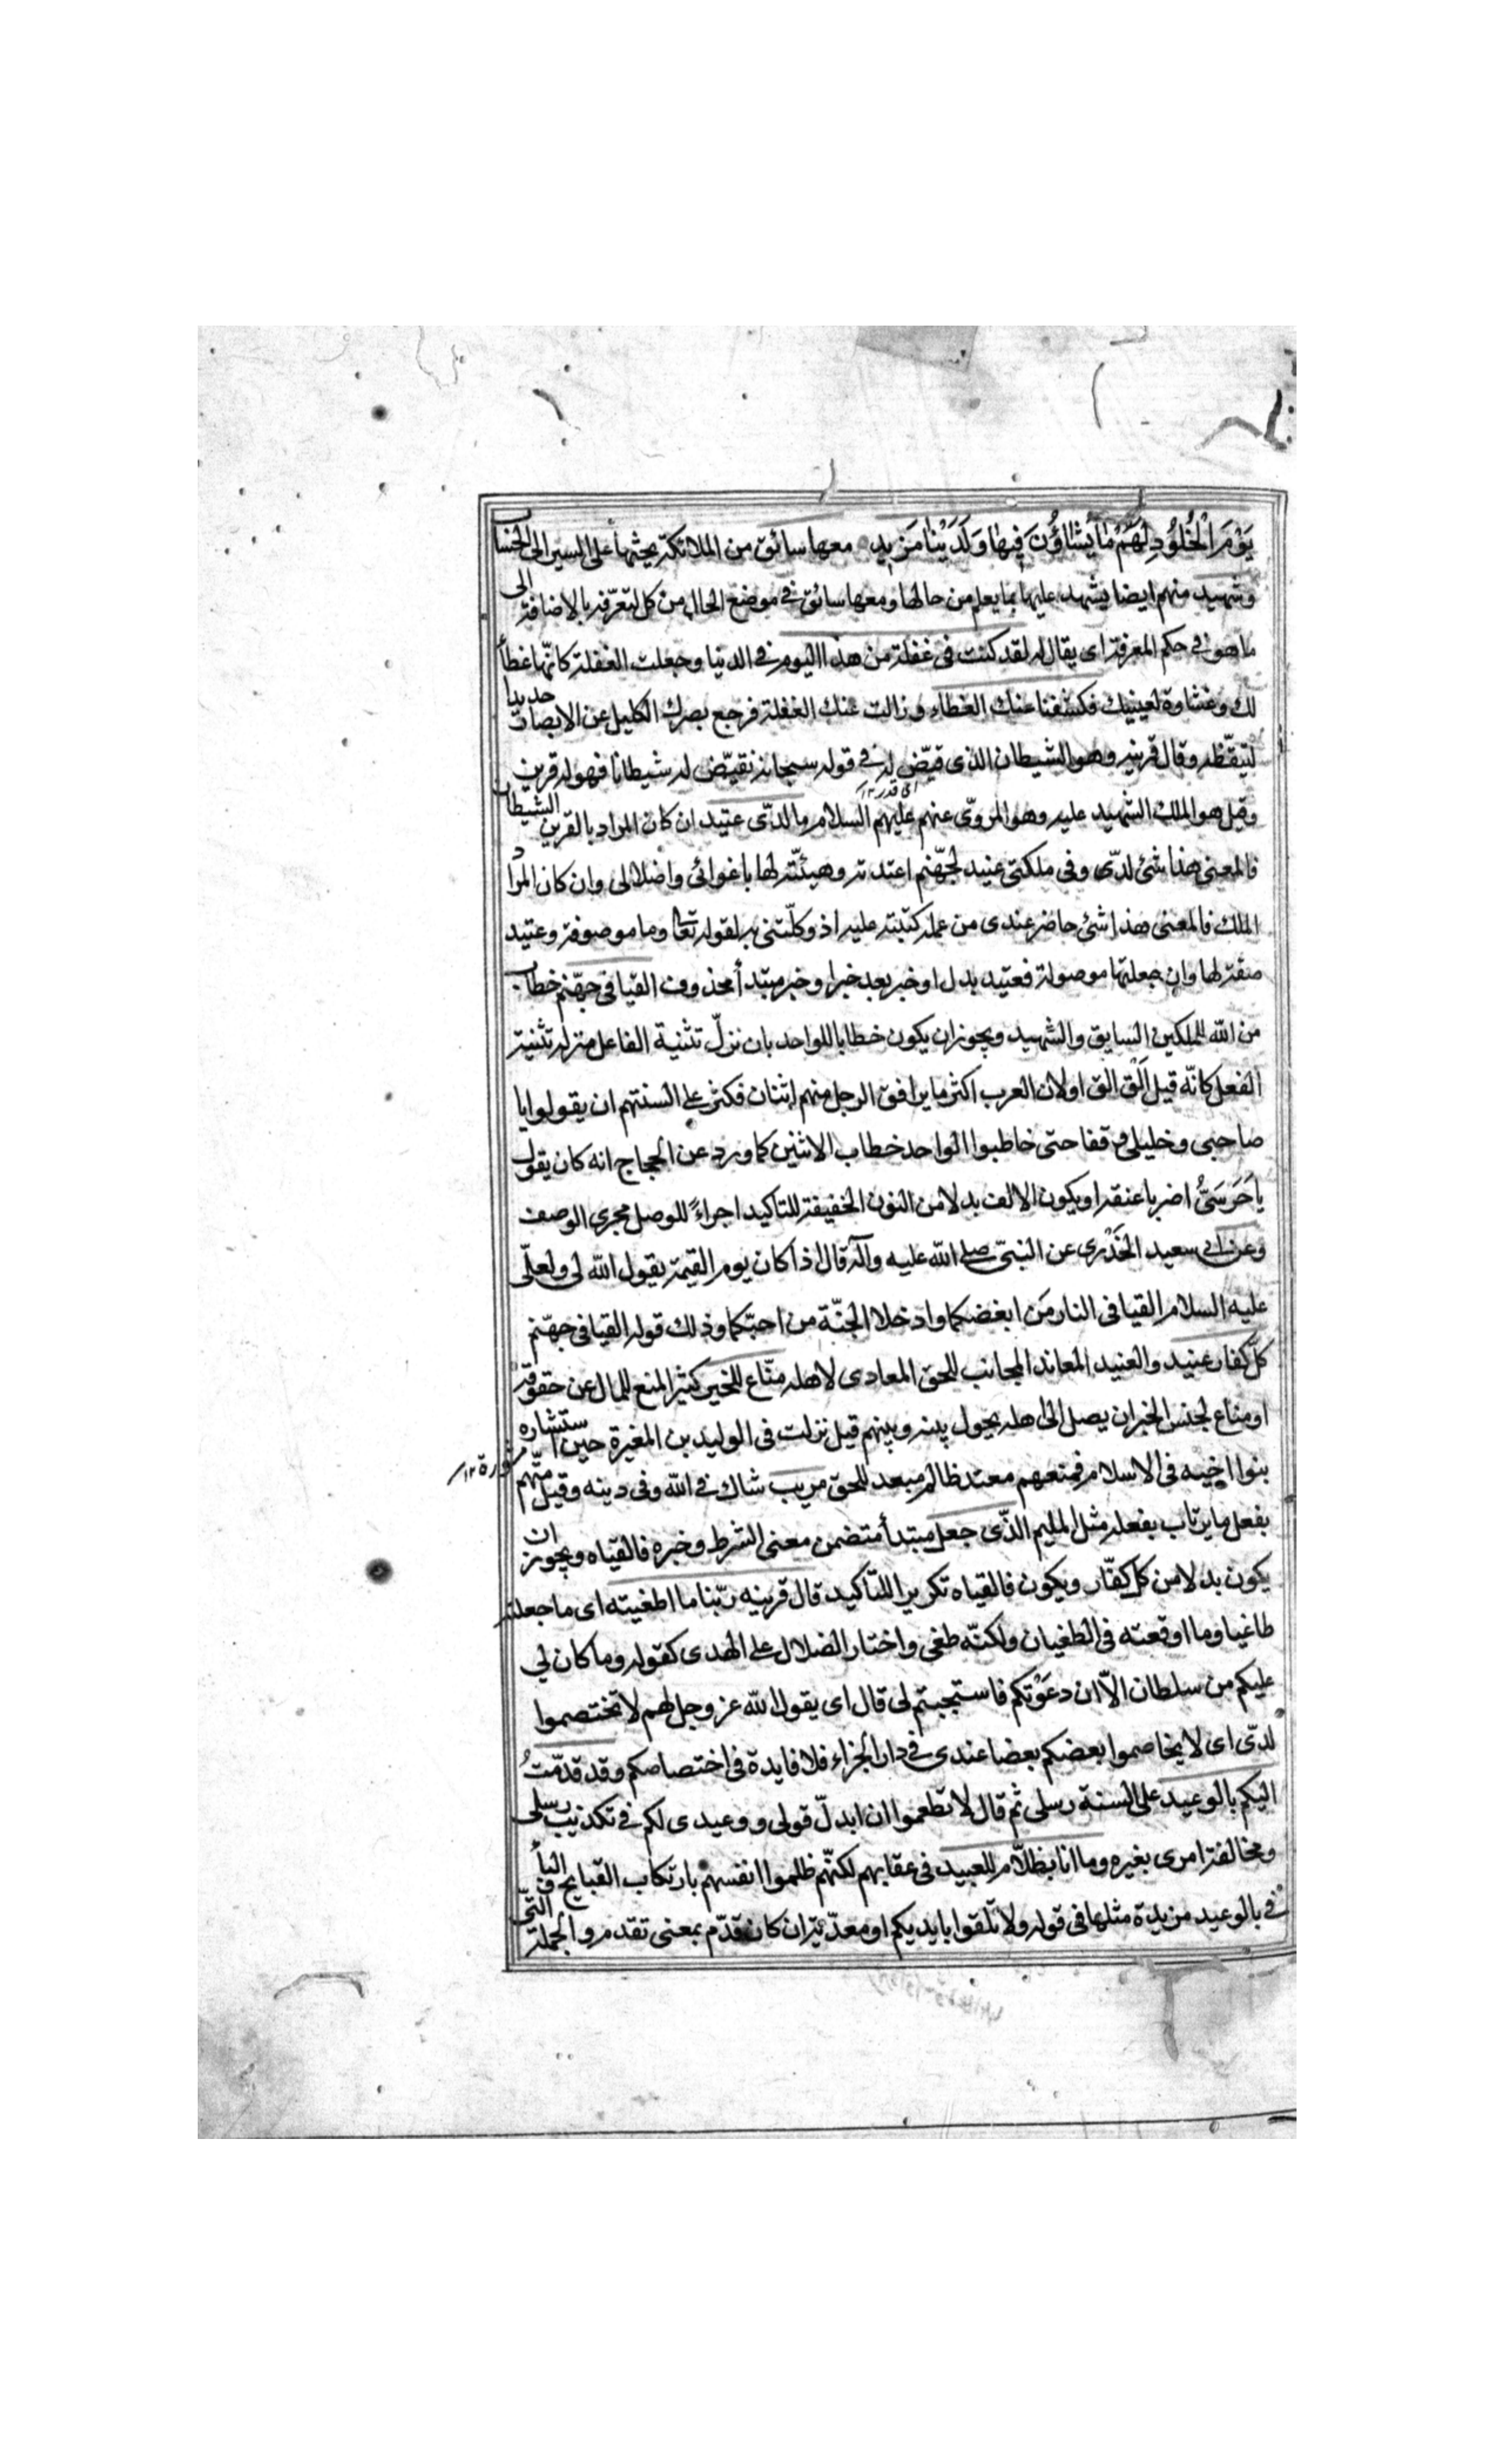 يَوْمَ الْخُلُودِ لَهُمْ مَا يَشَاؤُنَ فِيهَا وَلَدَيْنَا مَزِيدٌ معها سائق من الملائكة يحثها على السير الى الحساب
وشهيد منهم ايضا يشهد عليها بما يعلم من حالها ومعها سائق في موضع الحال من كل لتعرّفه بالاضافة الى
ما هو في حكم المعرفة اى يقال له لقد كنت فى غفلة من هذا اليوم في الدنيا وجعلت الغفلة كانّها غطاء
لك وغشاوة لعينيك فكشفنا عنك الغطاء وزالت عنك الغفلة فرجع بصرك الكليل عن الابصار حديدا
لتيقّظه وقال قرينه وهو الشيطان الذى قيّض له في قوله سبحانه نقيّض له شيطانا فهو له قرين
اى قدر ١٢
وقيل هو الملك الشهيد عليه وهو المروىّ عنهم عليهم السلام ما لدىّ عتيد ان كان المراد بالقرين الشيطان
فالمعنى هذا شئ لدىّ وفى ملكتى عتيد لجهّنم اعتدته وهيئته لها باغوائى واضلالى وان كان المراد
الملك فالمعنى هذا شئ حاضر عندى من عمله كتبته عليه اذ وكلّتنى به لقوله تعا وما موصوفة وعتيد
صفة لها وان جعلتها موصولة فعتيد بدل او خبر بعد خبر او خبر مبتدأ محذوف القيا فى جهّنم خطاب
من الله للملكين السايق والشهيد ويجوز ان يكون خطابا للواحد بان نزلّ تثنية الفاعل منزلة تثنية
الفعل كانّه قيل اَلْق الق او لان العرب اكثر ما يرافق الرجل منهم اثنان فكثر على السنتهم ان يقولوا يا
صاحبى وخليلى وقفا حتى خاطبوا الواحد خطاب الاثنين كما ورد عن الحجاج انه كان يقول
يا حَرَسَىُّ اضربا عنقه او يكون الالف بدلا من النون الخفيفة للتاكيد اجراءً للوصل مجرى الوصف
وعن ابى سعيد الخدرى عن النبىّ صلى الله عليه وآله قال اذا كان يوم القيمة يقول الله لى ولعلّى
عليه السلام القيا فى النار مَن ابغضكما وادخلا الجنّة من احبّكما وذلك قوله القيا فى جهّنم
كلّ كفار عنيد والعنيد المعاند المجانب للحق المعادى لاهله منّاع للخير كثير المنع للمال عن حقوقه
او مناع لجنس الخير ان يصل الى اهله يحول بينه وبينهم قيل نزلت فى الوليد بن المغيرة حين استشاره
مشورة ١٢
بنوا اخيه فى الاسلام فمنعهم معتد ظالم مبعد للحق مريب شاك في الله وفى دينه وقيل متّهم
يفعل ما يرتاب بفعله مثل المليم الذّى جعل مبتدأ متضمن معنى الشرط وخبره فالقياه ويجوز ان
يكون بدلا من كلّ كفّار ويكون فالقياه تكريرا للتاكيد قال قرينه ربّنا ما اطغيته اى ما جعلته
طاغيا وما اوقعته فى الطغيان ولكنّه طغى واختار الضلال على الهدى كقوله وما كان لي
عليكم من سلطان الاّ ان دعَوْتكم فاستجبتم لى قال اى يقول الله عز وجل لهم لا تختصموا
لدىّ اى لا يخاصموا بعضكم بعضا عندى في دار الجزاء فلا فايدة فى اختصاصكم وقد قدّمتُ
اليكم بالوعيد على السنة رسلى ثم قال لا تطمعوا ان ابدلّ قولى ووعيدى لكم في تكذيب رسلى
ومخالفة امرى بغيره وما انا بظلاّم للعبيد فى عقابهم لكنّهم ظلموا انفسهم بارتكاب القبايح والبأ
في بالوعيد مزيدة مثلها فى قوله ولا تلقوا بايديكم او معدّية ان كان قدّم بمعنى تقدم والجملة التّى